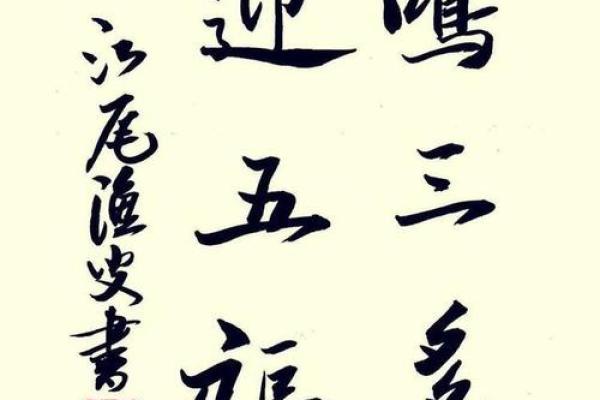 三多
迎五福
江尾渔叟書